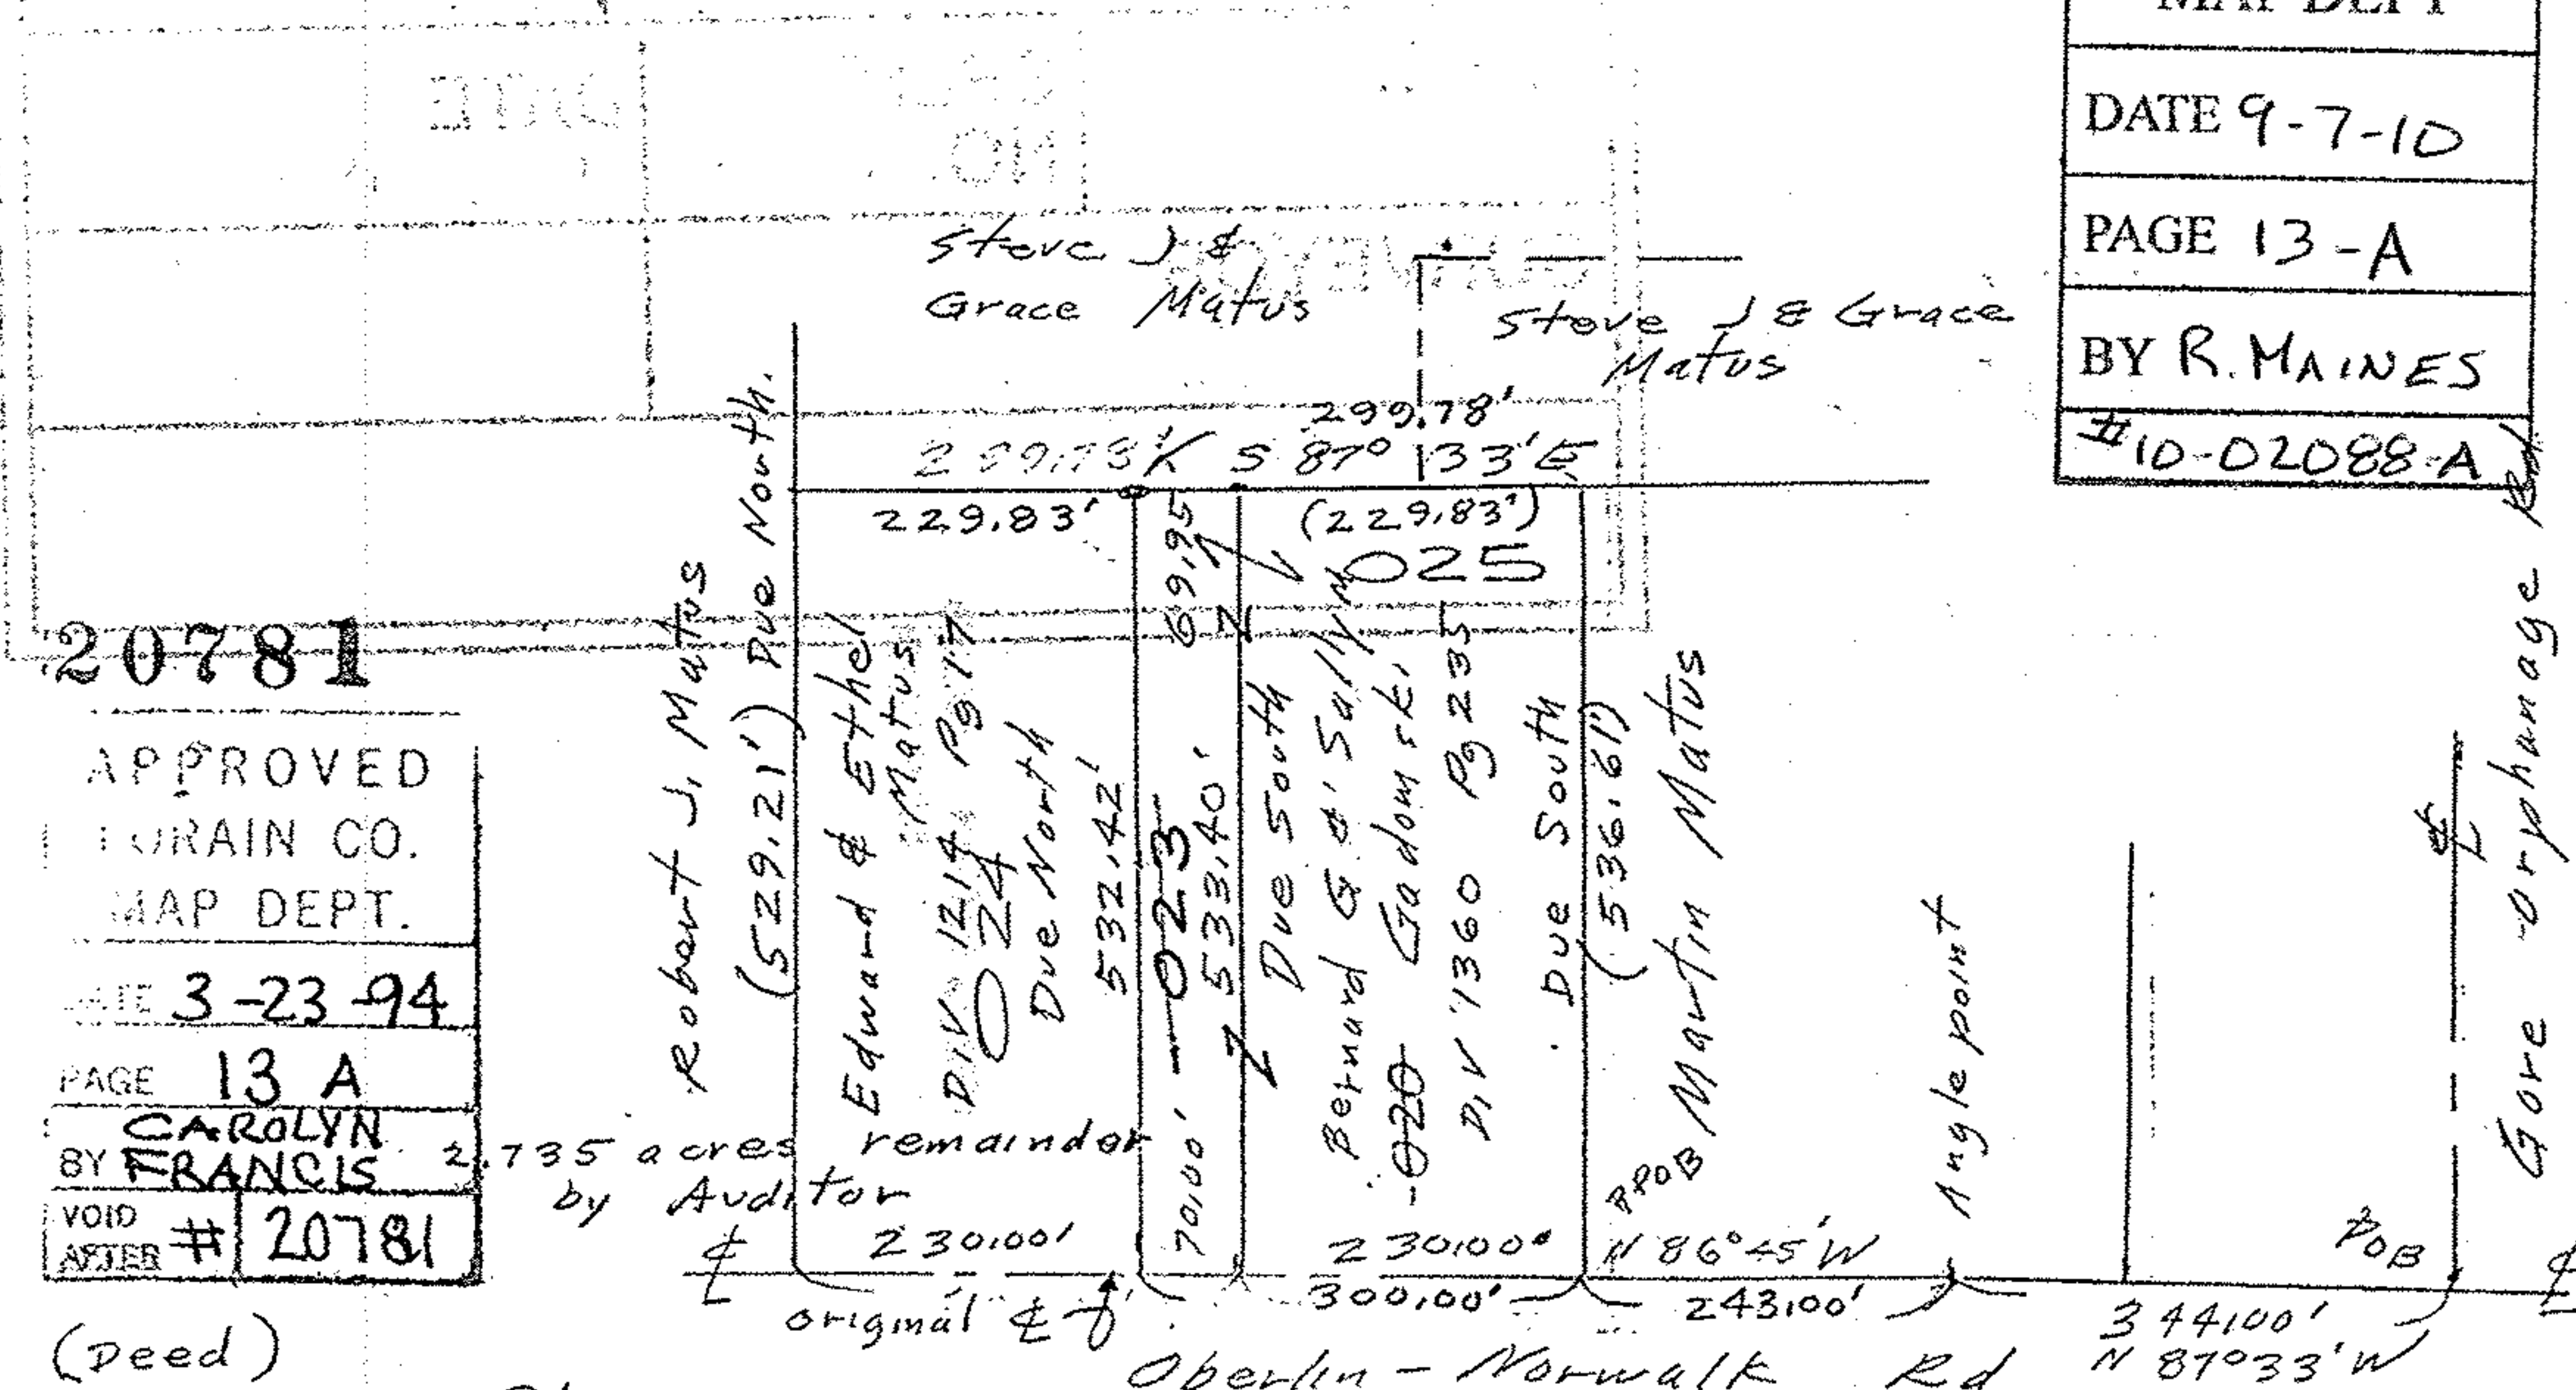 MAP DEPT
DATE 9-7-10
PAGE 13-A
BY R. MAINES
#10-02088-A
DATE
NO.
SURVEYOR
Steve J &
Grace Matus
Steve J & Grace
Matus
299.78'
S 87° 33' E
229.83'
69.95'
(229.83')
025
20781
APPROVED
LORAIN CO.
MAP DEPT.
DATE 3-23-94
PAGE 13 A
BY CAROLYN
FRANCIS
VOID
AFTER # 20781
Robert J. Matus
(529.21') Due North.
Edward & Ethel
Matus
D.V. 1214 Pg 17
024
Due North
532.42'
023
533.40'
Due South
Bernard G & Sally M
Gadomski
-020
D.V. 1360 Pg 235
Due South
(536.61')
Martin Matus
Angle point
℄
Gore orphanage Rd
2.735 acres remainder
by Auditor
℄
230.00'
70.00'
230.00'
PPOB
N 86°45'W
POB
℄
original ℄
300.00'
243.00'
344.00'
N 87°33'W
(Deed)
Oberlin - Norwalk Rd